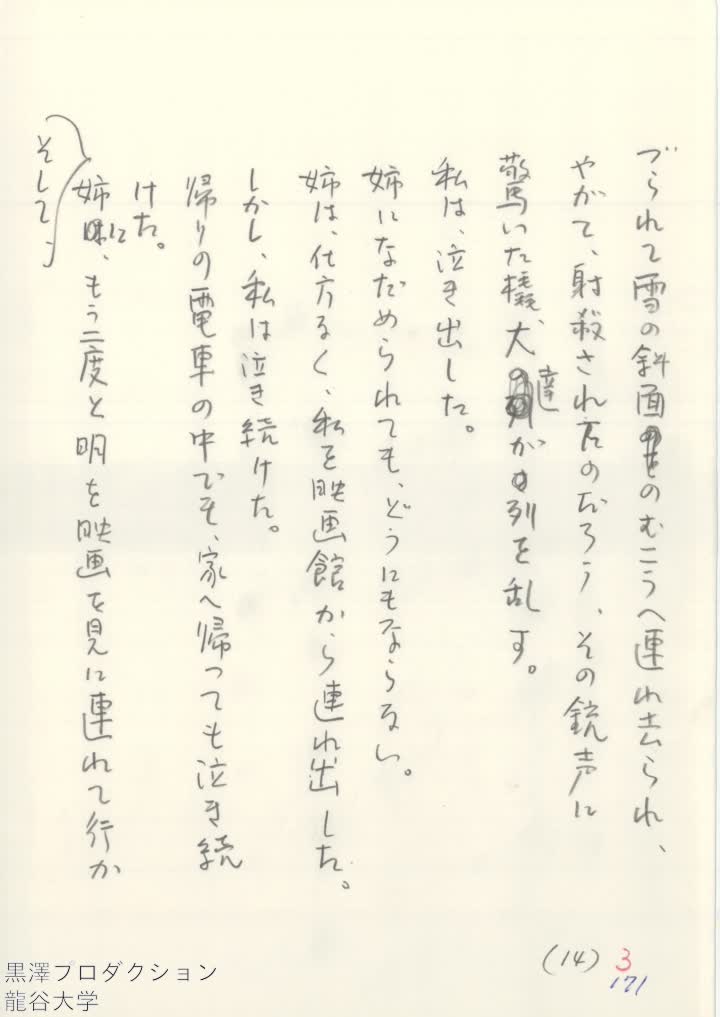 づられて雪の斜面のむこうへ連れ去られ、
やがて、射殺されたのだろう、その銃声に
驚いた橇犬達が列を乱す。
私は、泣き出した。
姉になだめられても、どうにもならない。
姉は、仕方なく、私を映画館から連れ出した。
しかし、私は泣き続けた。
帰りの電車の中でも、家へ帰っても泣き続
けた。
姉に、もう二度と明を映画を見に連れて行か
そして、
(14) 3
171
黒澤プロダクション
龍谷大学